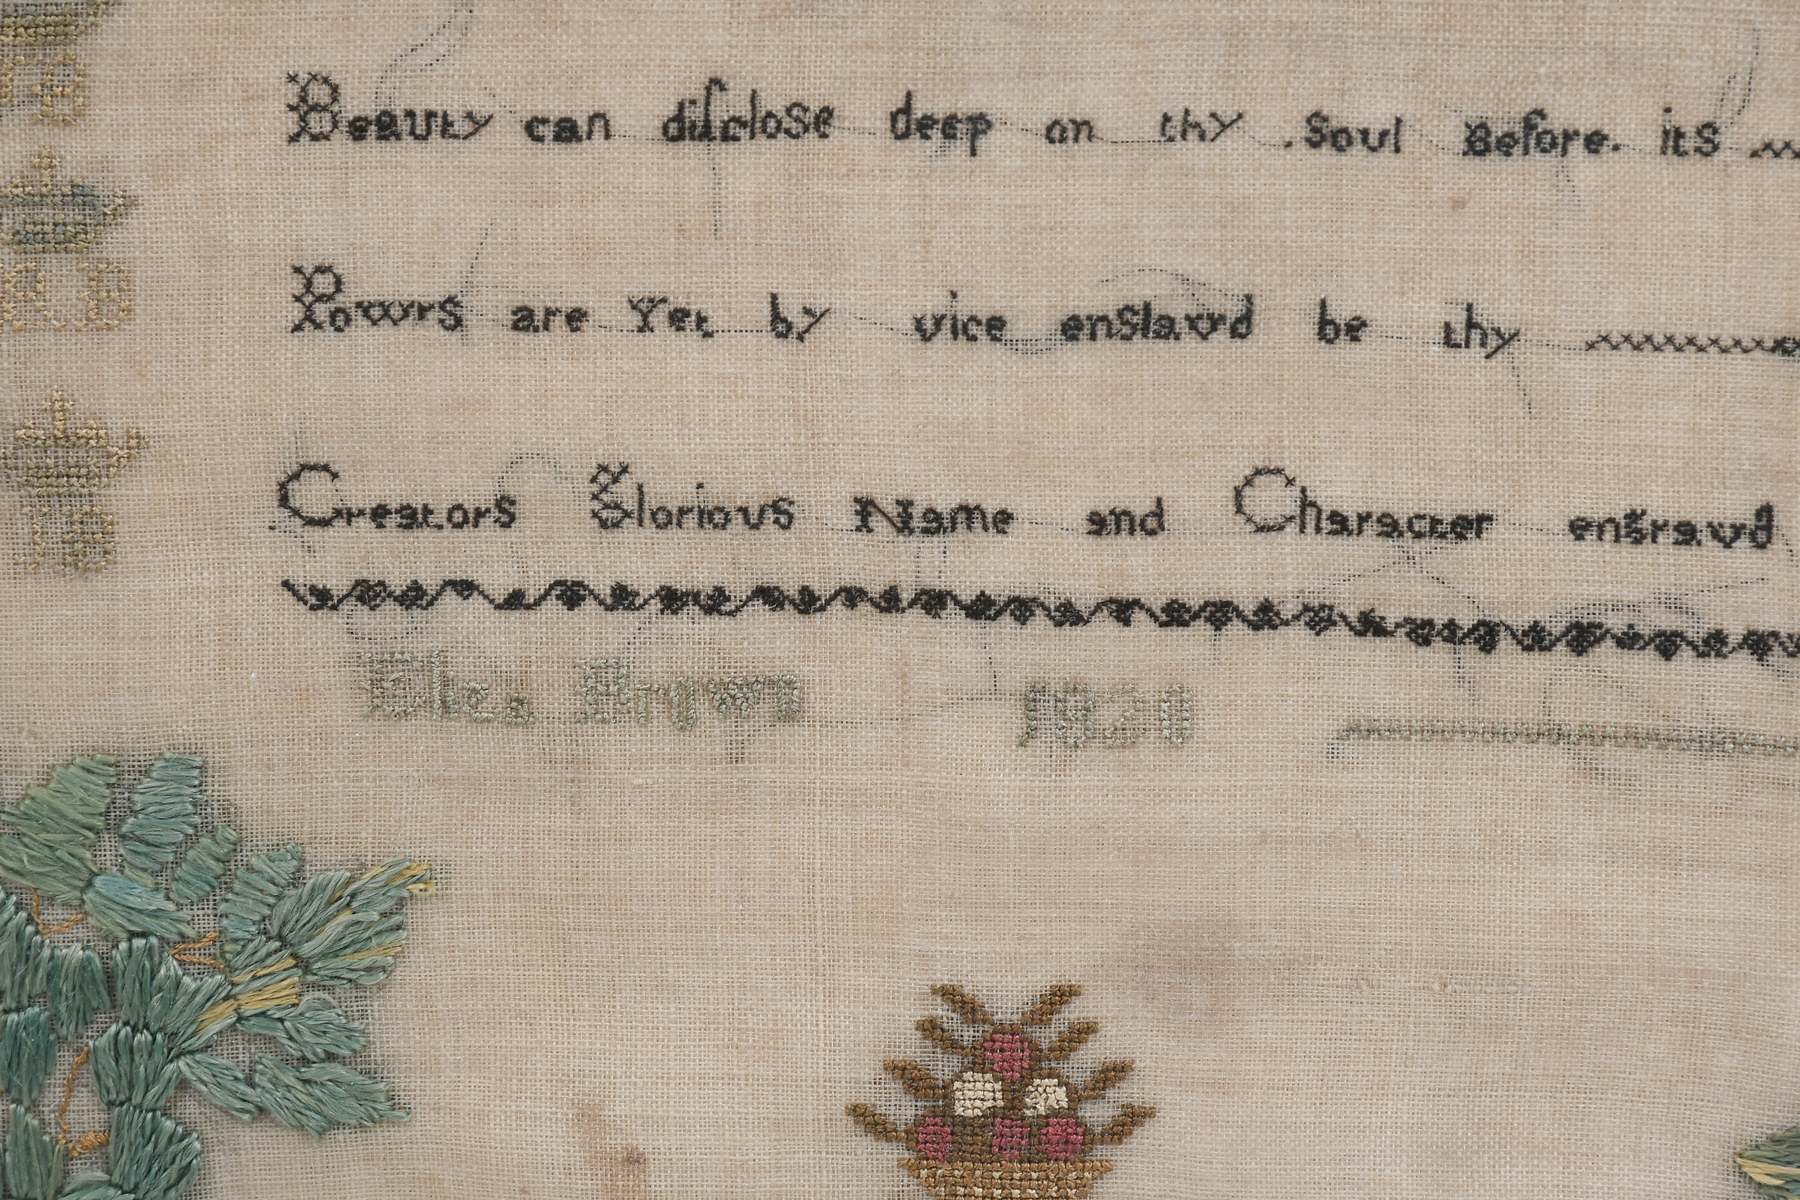 Beauty can diſclose deep on thy .Soul Before. its
Powrs are Yet by vice enslavd be thy
Creators Glorious Name and Character engravd
Eliza Brown 1820
R B
I B